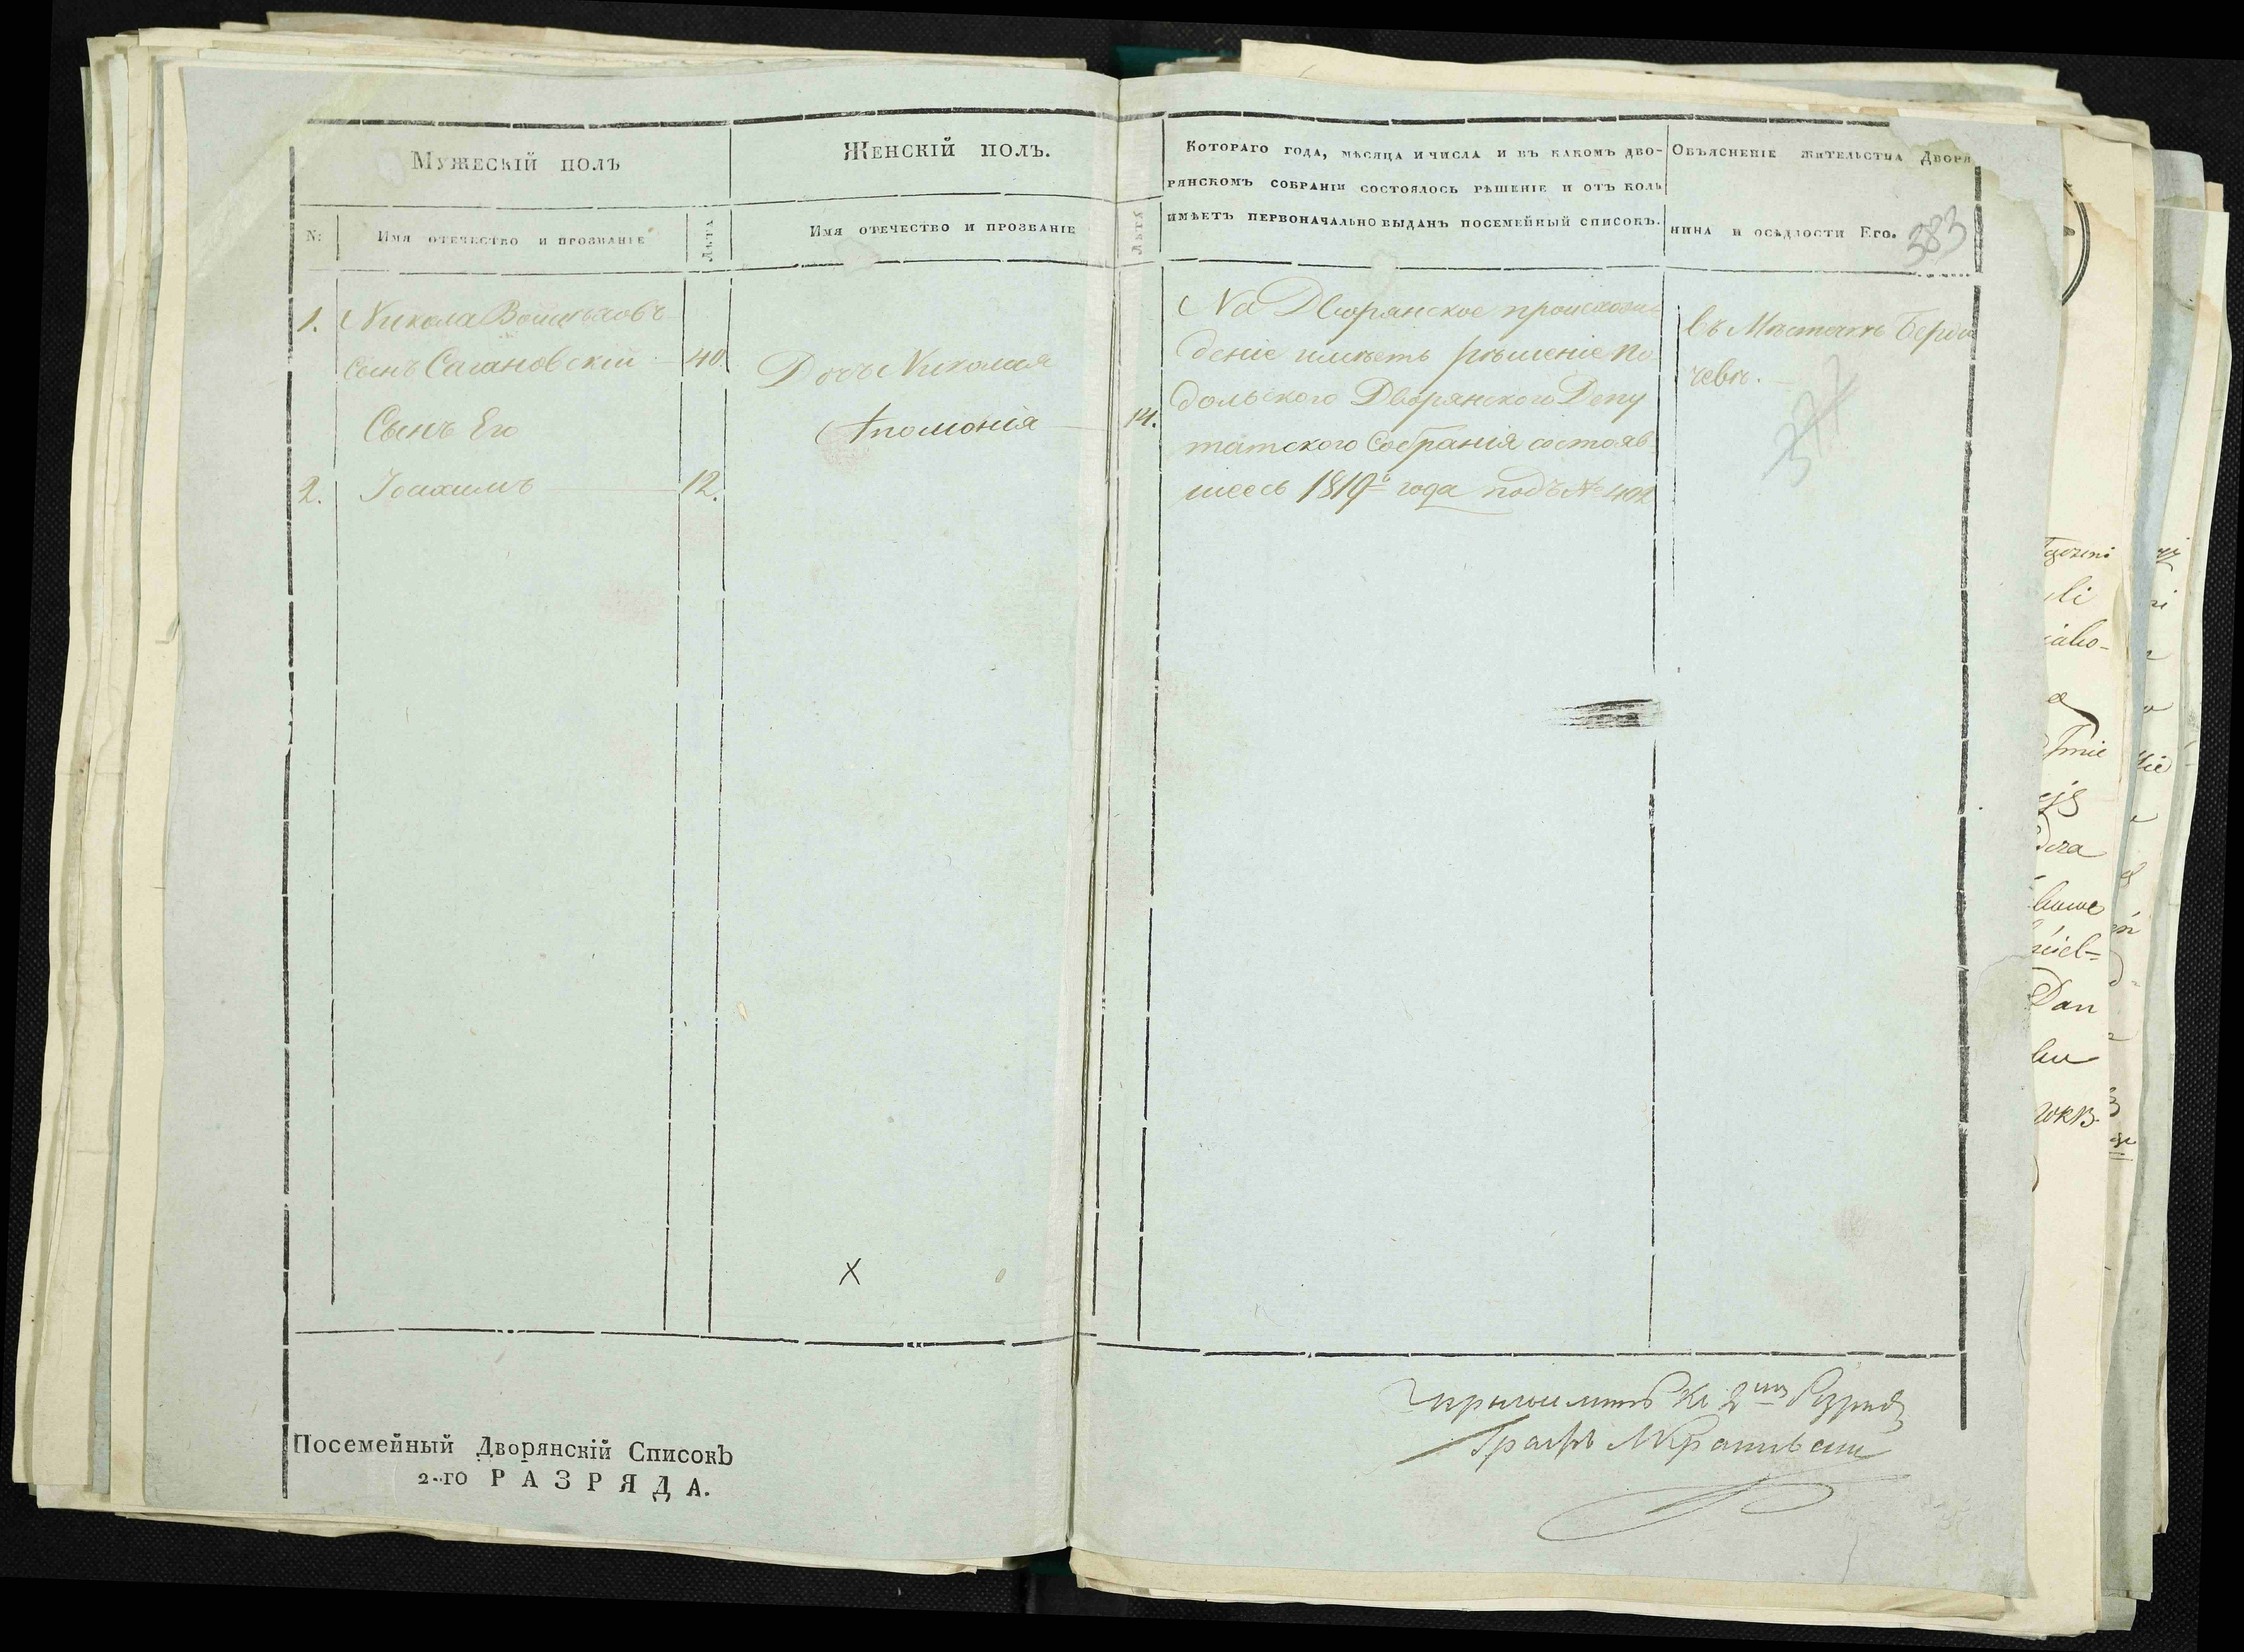 Мужескій полъ
Женскій полъ.
Котораго года, мѣсяца и числа и въ какомъ дво-
рянскомъ собраніи состоялось рѣшеніе и отъ коль
имѣетъ первоначально выданъ посемейный списокъ.
Объясненіе жительства Дворя
нина и осѣдлости Его.
383
№:
Имя отечество и прозваніе
Лѣта
Имя отечество и прозваніе
Лѣта
1. Никола Войцѣховъ
сынъ Сагановскій 40.
Сынъ Его
2. Іоахимъ 12.
Дочь Николая
Аполонія 14.
На Дворянское происхож
деніе имѣетъ рѣшеніе По
дольского Дворянского Депу
татского Собранія состояв
шееся 1819 года подъ № 402
въ Мѣстечкѣ Берди
чевѣ.
377
X
Посемейный Дворянскій Списокъ
2-го РАЗРЯДА.
Графъ